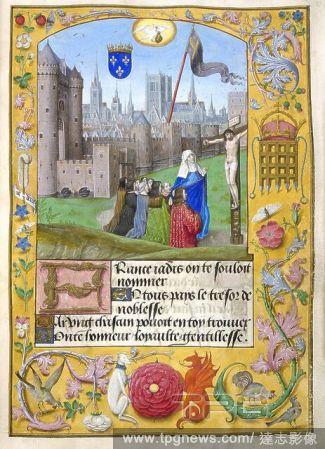 Rance iadis on te souloit
nommer
En tous pays le tresor de
noblesse
Car vng chascun pouoit en toy trouuer
Bonte honneur loyaulte gentillesse.
www.tpgnews.com / 達志影像